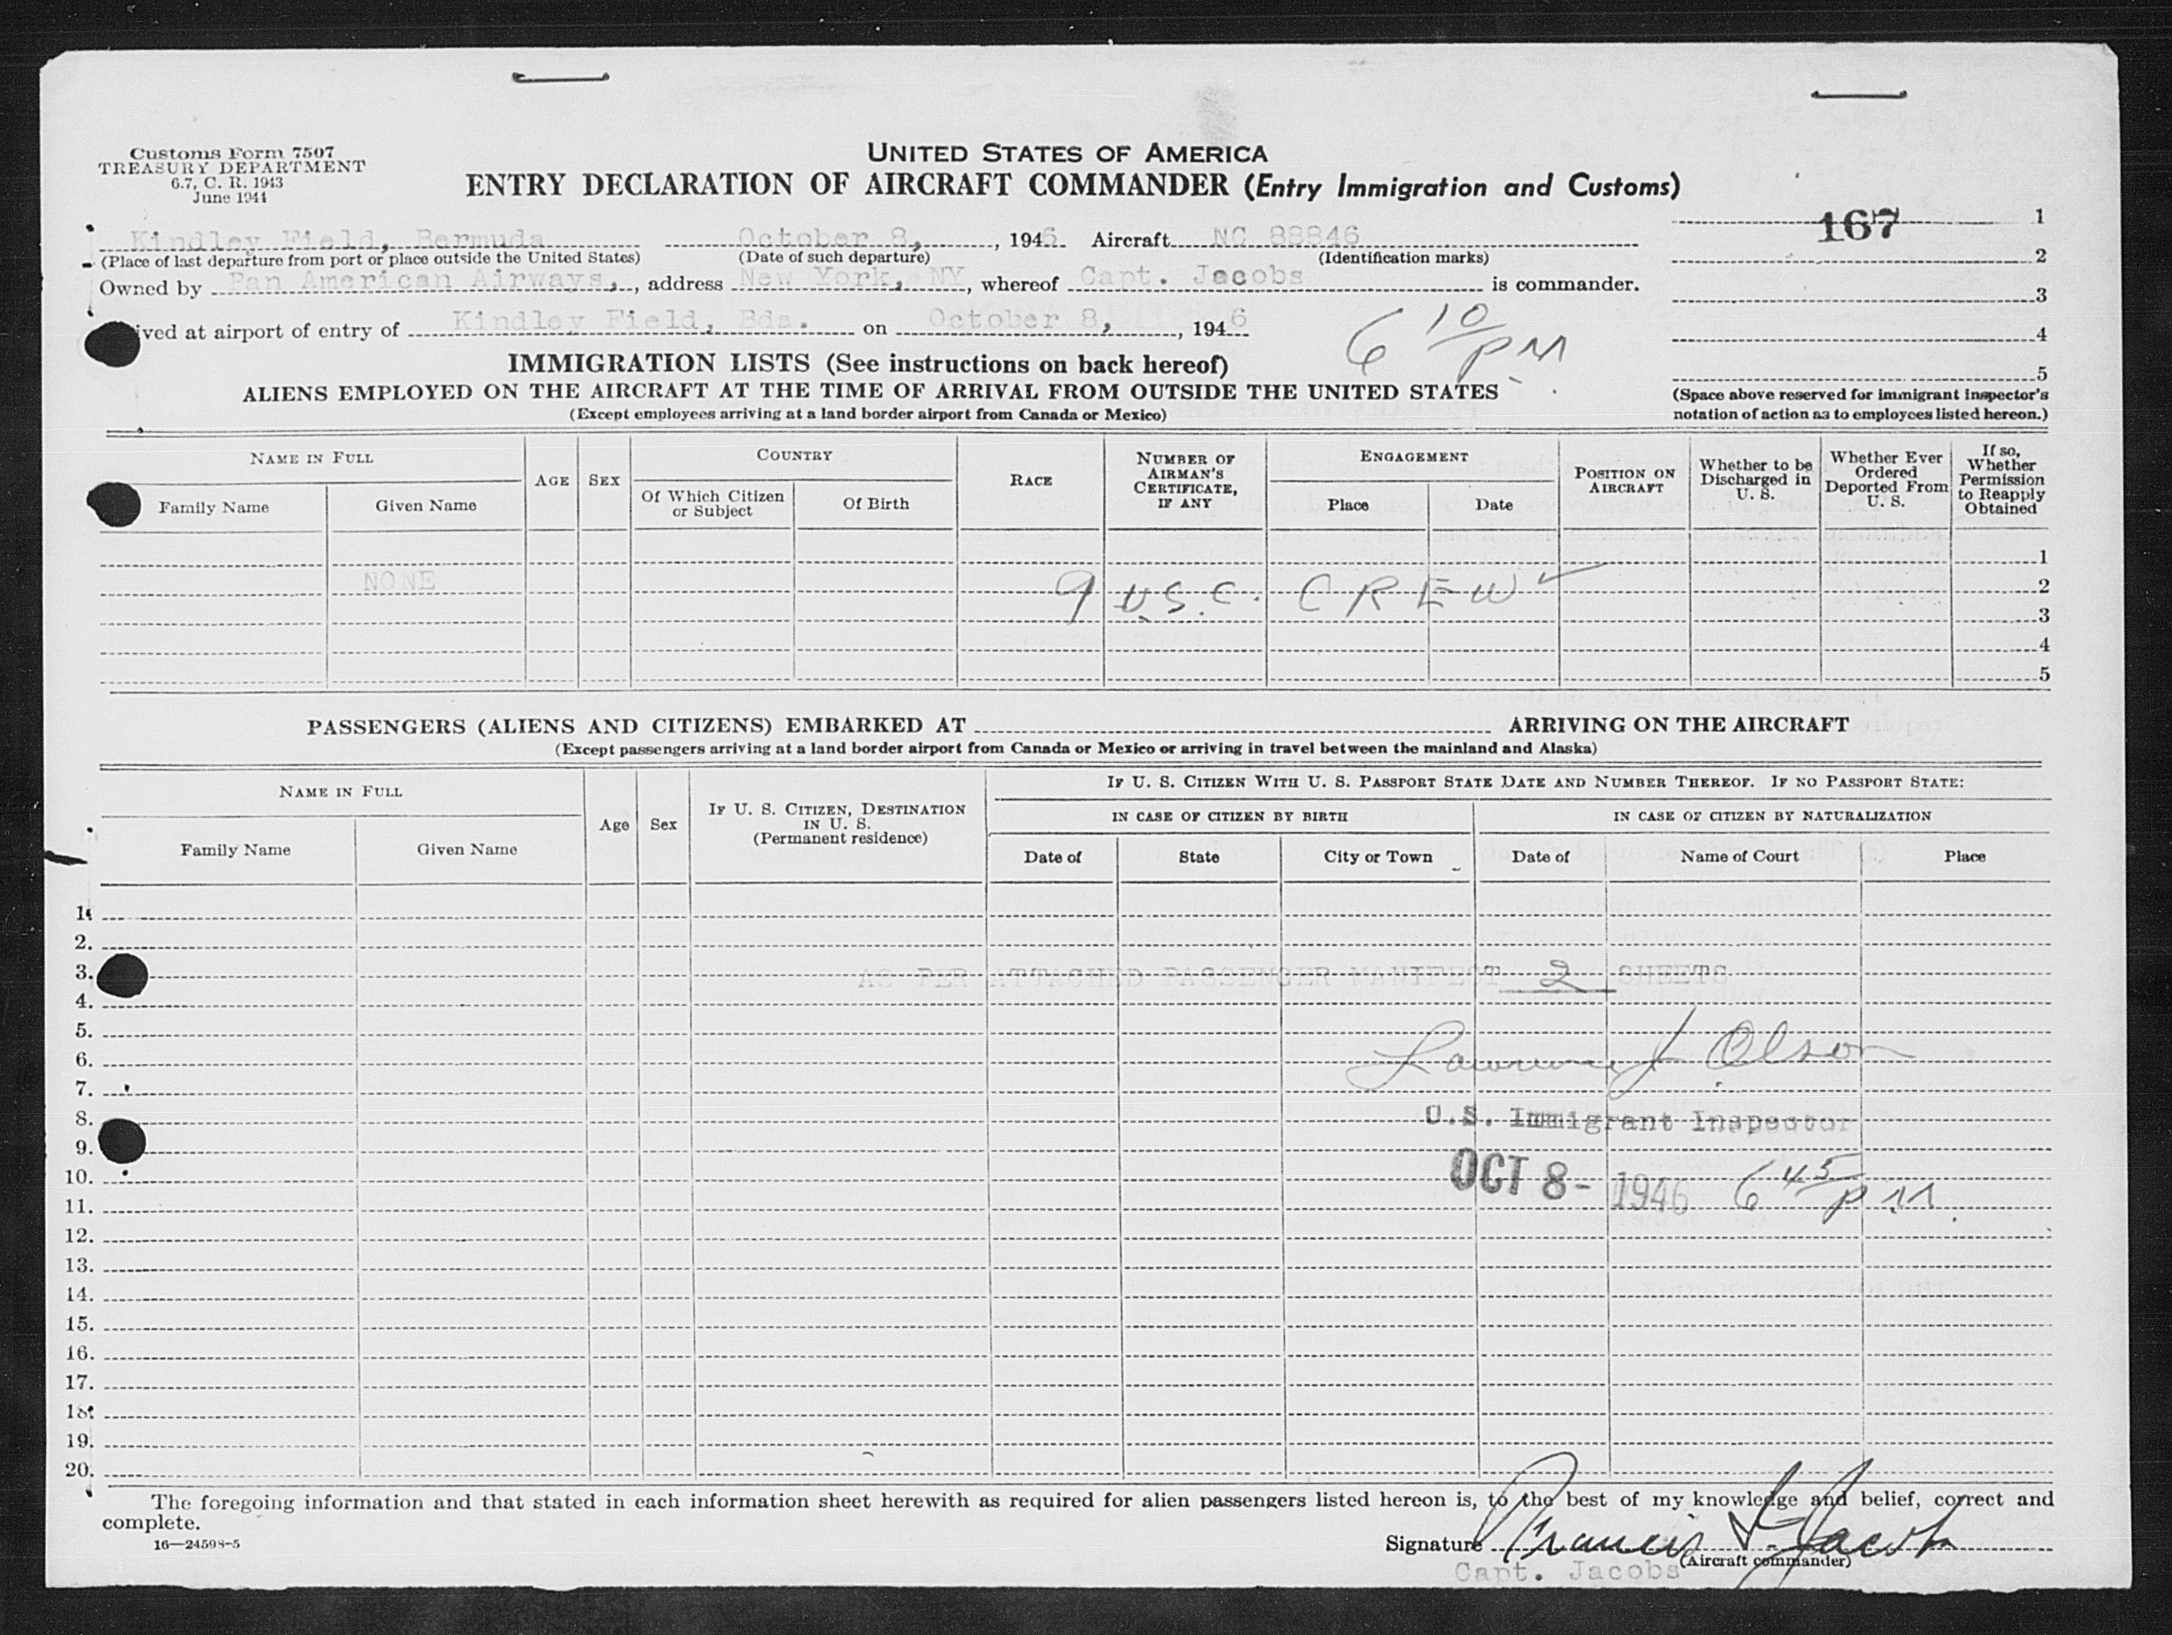 Customs Form 7507
TREASURY DEPARTMENT
6.7, C. R. 1943
June 1944
UNITED STATES OF AMERICA
ENTRY DECLARATION OF AIRCRAFT COMMANDER (Entry Immigration and Customs)
167
Kindley Field, Bermuda October 8, , 1946 Aircraft NC 88846
(Place of last departure from port or place outside the United States) (Date of such departure) (Identification marks)
Owned by Pan American Airways, , address New York, NY , whereof Capt. Jacobs is commander.
ived at airport of entry of Kindley Field, Bda. on October 8, , 1946
6 10 PM
1
2
3
4
5
(Space above reserved for immigrant inspector's
notation of action as to employees listed hereon.)
IMMIGRATION LISTS (See instructions on back hereof)
ALIENS EMPLOYED ON THE AIRCRAFT AT THE TIME OF ARRIVAL FROM OUTSIDE THE UNITED STATES
(Except employees arriving at a land border airport from Canada or Mexico)
NAME IN FULL
Family Name Given Name
AGE
SEX
COUNTRY
Of Which Citizen or Subject
Of Birth
RACE
NUMBER OF AIRMAN'S CERTIFICATE, IF ANY
ENGAGEMENT
Place Date
POSITION ON AIRCRAFT
Whether to be Discharged in U. S.
Whether Ever Ordered Deported From U. S.
If so, Whether Permission to Reapply Obtained
1
NONE 9 U.S.C. CREW 2
3
4
5
PASSENGERS (ALIENS AND CITIZENS) EMBARKED AT ARRIVING ON THE AIRCRAFT
(Except passengers arriving at a land border airport from Canada or Mexico or arriving in travel between the mainland and Alaska)
NAME IN FULL
Family Name Given Name
Age
Sex
IF U. S. CITIZEN, DESTINATION IN U. S. (Permanent residence)
IF U. S. CITIZEN WITH U. S. PASSPORT STATE DATE AND NUMBER THEREOF. IF NO PASSPORT STATE:
IN CASE OF CITIZEN BY BIRTH IN CASE OF CITIZEN BY NATURALIZATION
Date of State City or Town Date of Name of Court Place
1.
2.
3. AS PER ATTACHED PASSENGER MANIFEST 2 SHEETS
4.
5.
6. Lawrence J Olson
7.
8. U.S. Immigrant Inspector
9.
10. OCT 8- 1946 6 45 PM
11.
12.
13.
14.
15.
16.
17.
18.
19.
20.
The foregoing information and that stated in each information sheet herewith as required for alien passengers listed hereon is, to the best of my knowledge and belief, correct and
complete.
16—24598-5
Signature Francis J. Jacobs
Capt. Jacobs (Aircraft commander)